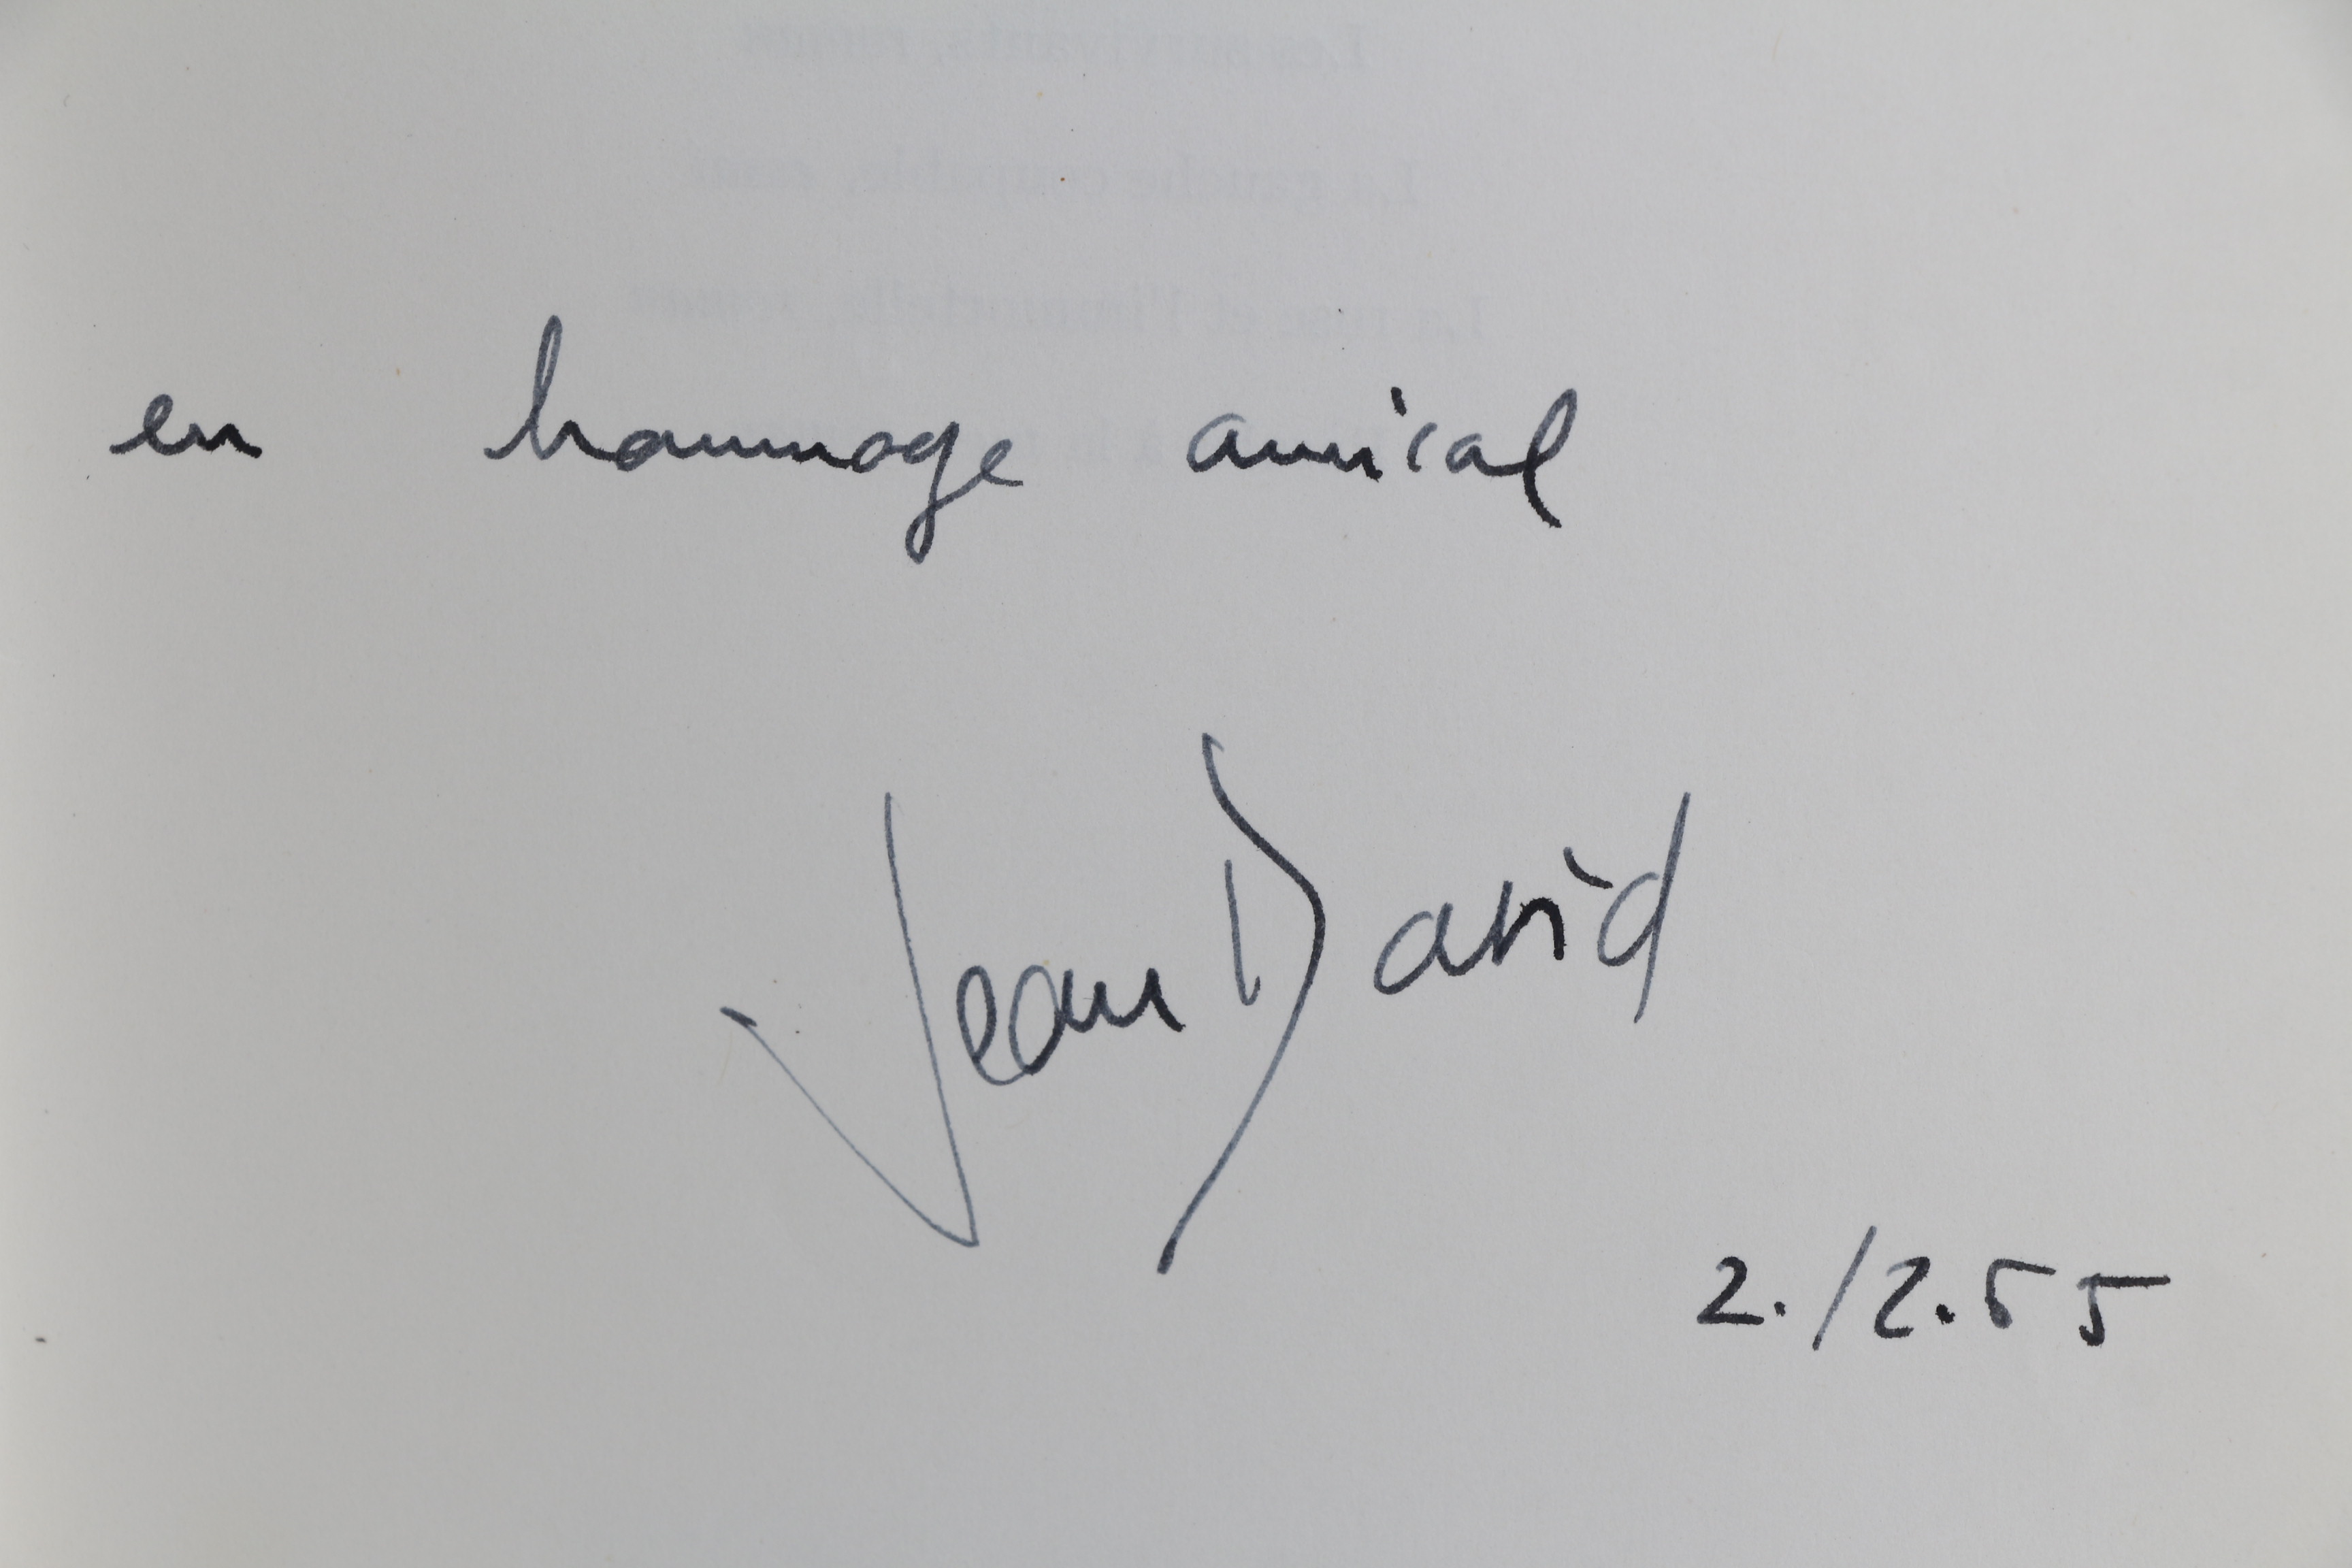 en hommage amical
Jean David
2.12.55